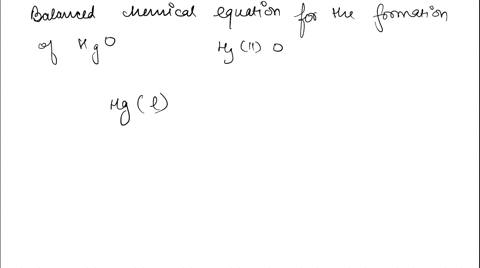 Balanced chemical equation for the formation
of HgO Hg (II) O
Hg (l)